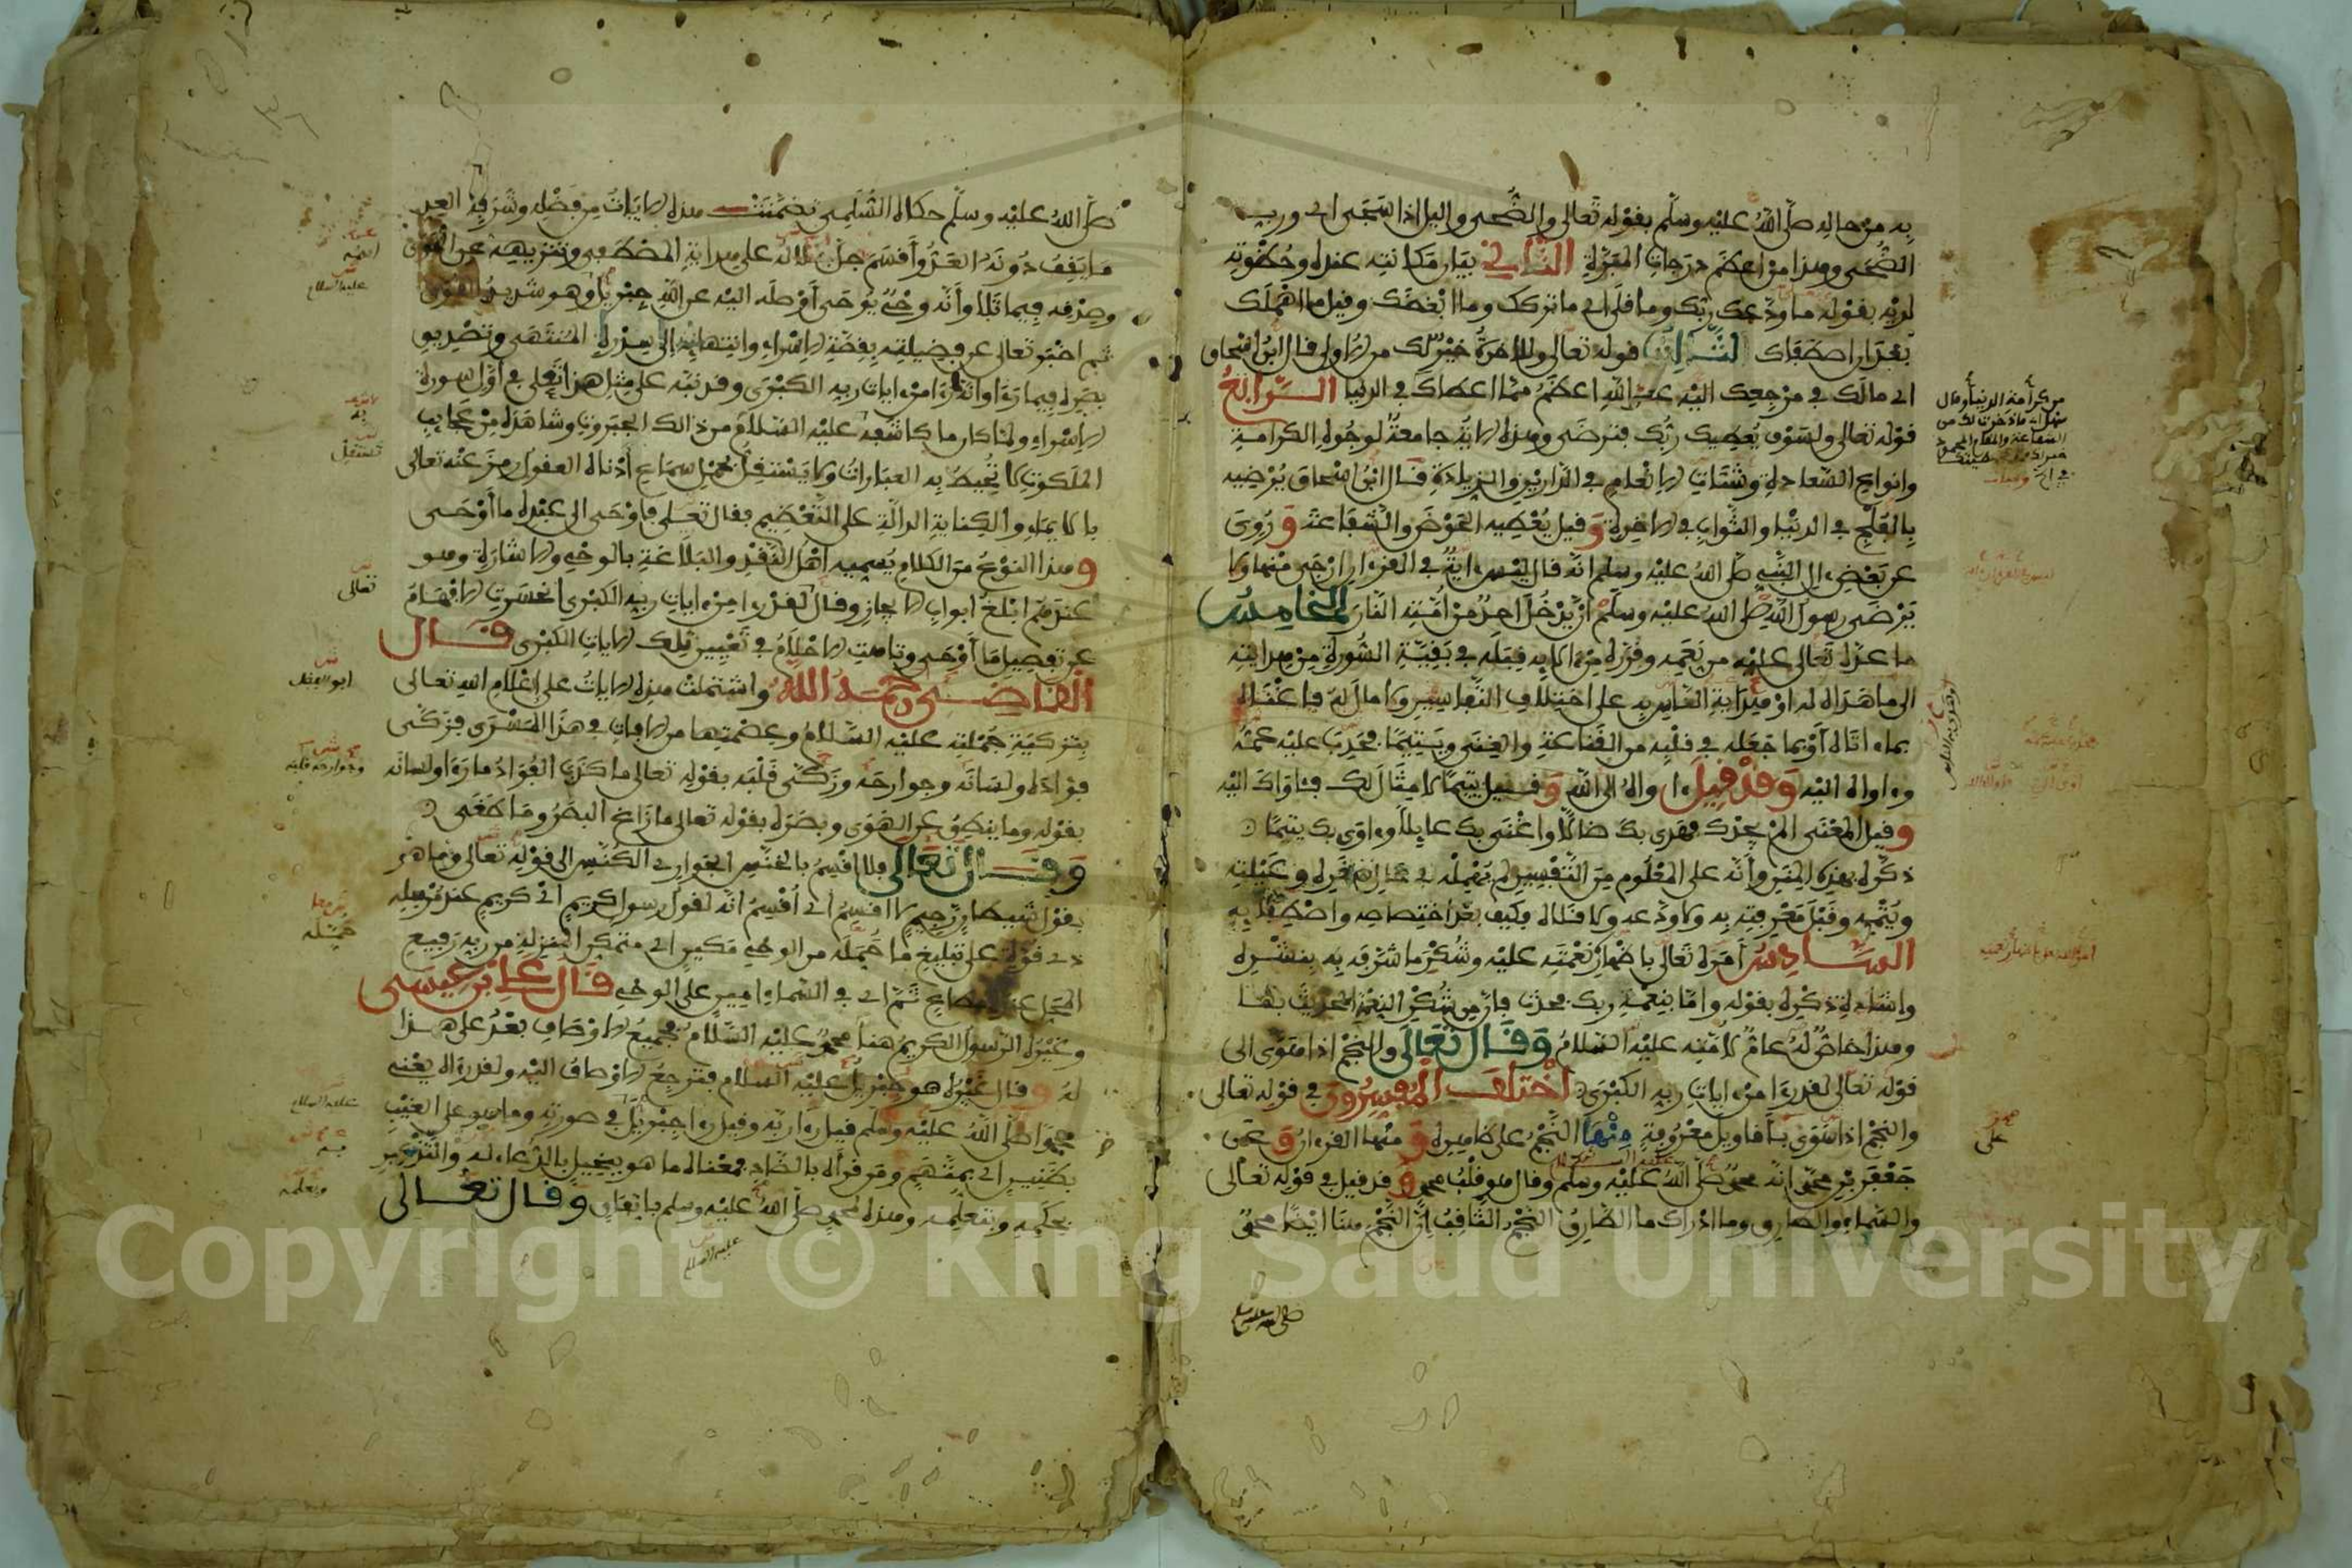 به من حاله صلى الله عليه وسلم بقوله تعالى والضحى واليل اذا سجى اي ورب
الضحى وهذا من اعظم درجات المبرة الثاني بيان مكانته عنده وحظوته
لديه بقوله ما ودعك ربك وما قلى اي ما تركك وما ابغضك وقيل ما اهملك
بعد ان اصطفاك الثالث قوله تعالى وللاخرة خير لك من الاولى قال ابن اسحاق
اي مالك في مرجعك اليه عند الله اعظم مما اعطاك في الدنيا الرابع
قوله تعالى ولسوف يعطيك ربك فترضى وهذه الاية جامعة لوجوه الكرامة
وانواع السعادة وشتات الانعام في الدارين والزيادة قال ابن اسحاق يرضيه
بالفلج في الدنيا والثواب في الاخرة وقيل يعطيه الحوض والشفاعة وروي
عن بعض ال النبي صلى الله عليه وسلم انه قال ليس اية في القرءان ارجى منها ولا
يرضى رسول الله صلى الله عليه وسلم ان يدخل احد من امته النار الخامس
ما عده تعالى عليه من نعمه وقرره من الايه قبله في بقية السورة من هدايته
الى ما هداه له او هداية الناس به على اختلاف التفاسير ولا مال له فاغناه
بماء اتاه او بما جعله في قلبه من القناعة والغنى ويتيما فحدب عليه عمه
وءاواه اليه وقد قيل ءاواه الى الله وقيل يتيما لا مثال لك فئاواك اليه
وقيل المعنى الم يجدك فهدى بك ضالا واغنى بك عايلا وءاوى بك يتيما
ذكره بهذه المنن وانه على المعلوم من التفسير لم يهمله في حال صغره وعيلته
ويتمه وقبل معرفته به ولا ودعه ولا قلاه فكيف بعد اختصاصه واصطفايه
السادس امره تعالى باظهار نعمته عليه وشكر ما شرفه به بنشره
واشادة ذكره بقوله واما بنعمة ربك فحدث فان من شكر النعمة الحديث بها
وهذا خاص له عام لامته عليه السلام وقال تعالى والنجم اذا هوى الى
قوله تعالى لقد رءا من ءايات ربه الكبرى اختلف المفسرون في قوله تعالى
والنجم اذا هوى باقاويل معروفة منها النجم على ظاهره ومنها القرءان وعن
جعفر بن محمد انه محمد صلى الله عليه وسلم وقال هو قلب محمد وقد قيل في قوله تعالى
والسماء والطارق وما ادراك ما الطارق النجم الثاقب ان النجم هنا ايضا محمد
صلى الله عليه وسلم
من كرامة الدنيا وقال
صلى الله عليه وسلم حكاه السلمي تضمنت هذه الايات من فضله وشرفه العد
ما يقف دونه العد واقسم جل جلاله على هداية المصطفى وتنزيهه عن الهوى
وصدقه فيما تلا وانه وحي يوحى اوصله اليه عن الله جبريل وهو شديد القوى
ثم اخبر تعالى عن فضيلته بقصة الاسراء وانتهائه الى سدرة المنتهى وتصديق
بصره فيما رءا وانه رءا من ءايات ربه الكبرى وقد نبه على مثل هذا تعالى في اول سورة
الاسراء ولما كان ما كاشفه عليه السلام من ذالك الجبروت وشاهده من عجايب
الملكوت لا تحيط به العبارات ولا يستقل بحمل سماع ادناه العقول رمز عنه تعالى
بالايماء والكناية الدالة على التعظيم فقال تعالى فاوحى الى عبده ما اوحى
وهذا النوع من الكلام يسميه اهل النقد والبلاغة بالوحي والاشارة وهو
عندهم ابلغ ابواب الايجاز وقال لقد رءا من ءايات ربه الكبرى انحسرت الافهام
عن تفصيل ما اوحى وتاهت الاحلام في تعيين تلك الايات الكبرى قال
القاضي رحمه الله واشتملت هذه الايات على اعلام الله تعالى
بتزكية جملته عليه السلام وعصمتها من الافات في هذا المسرى فزكى
فؤاده ولسانه وجوارحه وزكى قلبه بقوله تعالى ما كذب الفؤاد ما رءا ولسانه
بقوله وما ينطق عن الهوى وبصره بقوله تعالى ما زاغ البصر وما طغى
وقال تعالى فلا اقسم بالخنس الجوار الكنس الى قوله تعالى وما هو
بقول شيطان رجيم لا اقسم اي اقسم انه لقول رسول كريم اي كريم عند مرسله
ذي قوة على تبليغ ما حمله من الوحي مكين اي متمكن المنزلة من ربه رفيع
المحل عنده مطاع ثم اي في السماء امين على الوحي قال علي بن عيسى
وغيره الرسول الكريم هنا محمد عليه السلام فجميع الاوصاف بعد على هذا
له وقال غيره هو جبريل عليه السلام فترجع الاوصاف اليه ولقد رءاه يعني
محمدا صلى الله عليه وسلم قيل رءا ربه وقيل رءا جبريل في صورته وما هو على الغيب
بظنين اي بمتهم ومن قراه بالضاد فمعناه ما هو ببخيل بالدعاء له والتذكير
بحكمه وبتعلمه وهذه لمحمد صلى الله عليه وسلم باتفاق وقال تعالى
عليه السلام
تعالى
ابو الفضل
وجوارحه قلبه
عليه السلام
عليه السلام